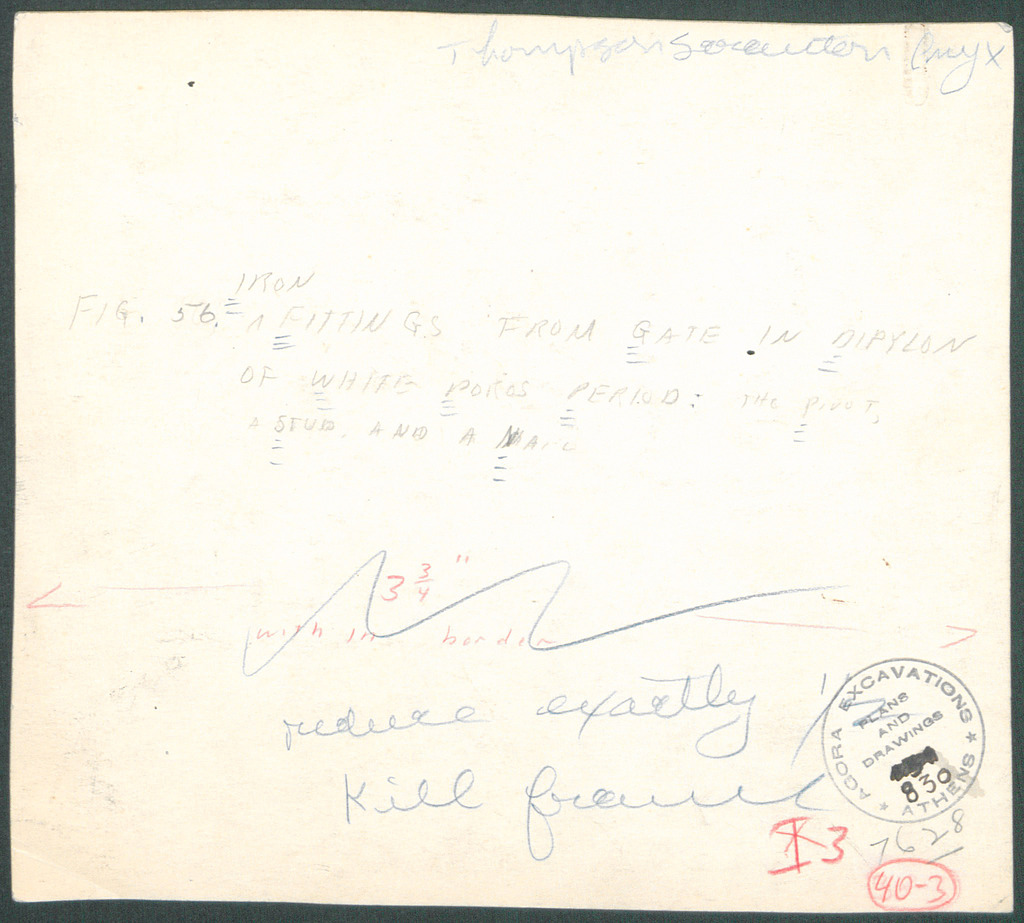 Thompson Scranton Onyx
IRON
FIG. 56. ^ FITTINGS FROM GATE IN DIPYLON
OF WHITE POROS PERIOD: THE PIVOT,
A STUD, AND A NAIL
3 3/4"
within border
reduce exactly 1/2
Kill frame
AGORA EXCAVATIONS
PLANS
AND
DRAWINGS
830
* ATHENS *
X3
7628
40-3